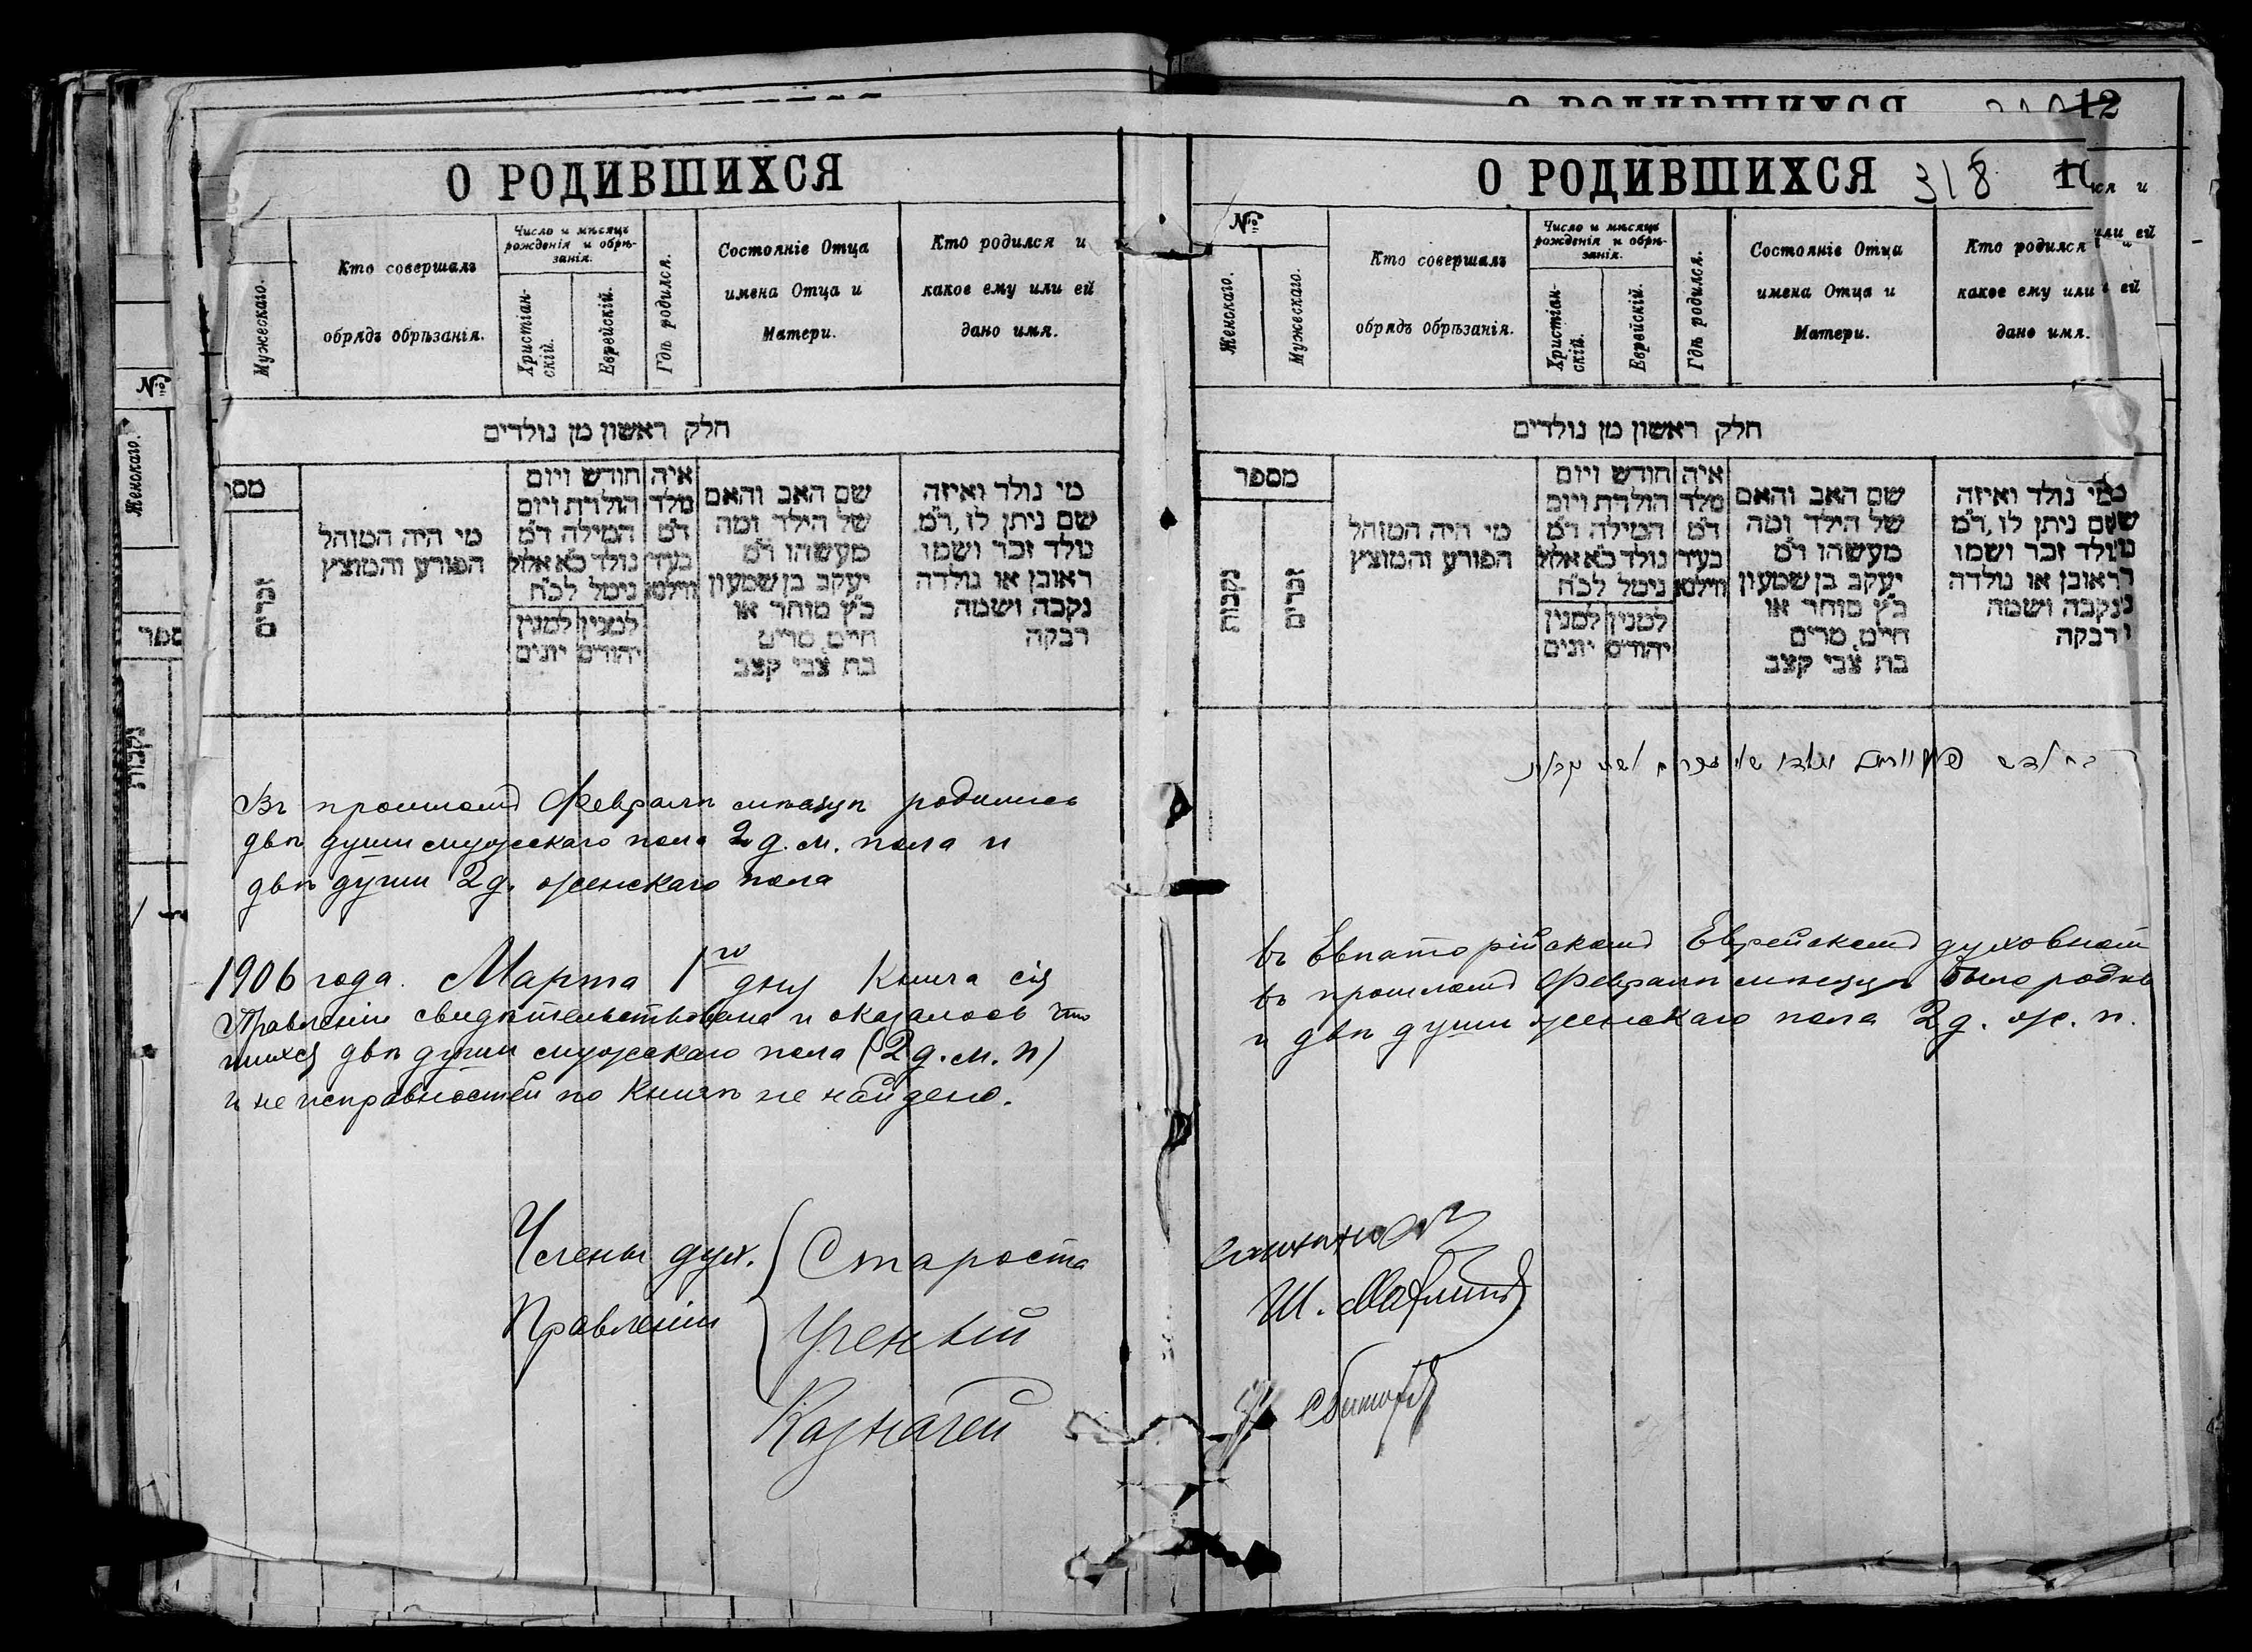 О РОДИВШИХСЯ
Мужескаго.
Кто совершалъ
обрядъ обрѣзанія.
Число и мѣсяцъ
рожденія и обрѣ-
занія.
Христіан-
скій.
Еврейскій.
Гдѣ родился.
Состояніе Отца
имена Отца и
Матери.
Кто родился и
какое ему или ей
дано имя.
№
Женскаго.
חלק ראשון מן נולדים
זכרים
מי היה המוהל
הפורע והמוצץ
חודש ויום
הולדת ויום
המילה ד״מ
נולד כ״א אלול
נימל לכ״ח
למנין למנין
יהודים יונים
איה
מלד
ד״מ
בעיר
ווילנא
שם האב והאם
של הילד ומה
מעשהו ד״מ
יעקב בן שמעון
כ״ץ סוחר או
חיים, מרים
בת צבי קצב
מי נולד ואיזה
שם ניתן לו, ד״מ
נולד זכר ושמו
ראובן או נולדה
נקבה ושמה
רבקה
נקבות
Въ прошломъ Февралѣ мѣсяцѣ родились
двѣ души мужескаго пола 2 д. м. пола и
двѣ души 2 д. женскаго пола
1906 года. Марта 1го дня Книга сія
Правленіи свидѣтельствована и оказалось что
шихся двѣ души мужескаго пола (2 д. м. п)
и неисправностей по Книгѣ не найдено.
Члены дух.
Правленія
Староста
Ученый
Казначей
О РОДИВШИХСЯ 318
12
№
Женскаго.
Мужескаго.
Кто совершалъ
обрядъ обрѣзанія.
Число и мѣсяцъ
рожденія и обрѣ-
занія.
Христіан-
скій.
Еврейскій.
Гдѣ родился.
Состояніе Отца
имена Отца и
Матери.
Кто родился
какое ему или ей
дано имя.
חלק ראשון מן נולדים
מספר
נקבות
זכרים
מי היה המוהל
הפורע והמוצץ
חודש ויום
הולדת ויום
המילה ד״מ
נולד כ״א אלול
נימל לכ״ח
למנין למנין
יהודים יונים
איה
מלד
ד״מ
בעיר
ווילנא
שם האב והאם
של הילד ומה
מעשהו ד״מ
יעקב בן שמעון
כ״ץ סוחר או
חיים, מרים
בת צבי קצב
מי נולד ואיזה
שם ניתן לו, ד״מ
נולד זכר ושמו
ראובן או נולדה
נקבה ושמה
רבקה
въ Евпаторійскомъ Еврейскомъ духовном
въ прошломъ Февралѣ мѣсяцѣ было родив
и двѣ души женскаго пола 2 д. ж. п.